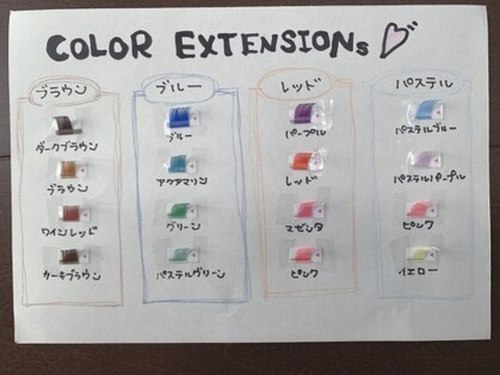 COLOR EXTENSIONS
ブラウン
ダークブラウン
ブラウン
ワインレッド
カーキブラウン
ブルー
ブルー
アクアマリン
グリーン
パステルグリーン
レッド
パープル
レッド
マゼンタ
ピンク
パステル
パステルブルー
パステルパープル
ピンク
イエロー